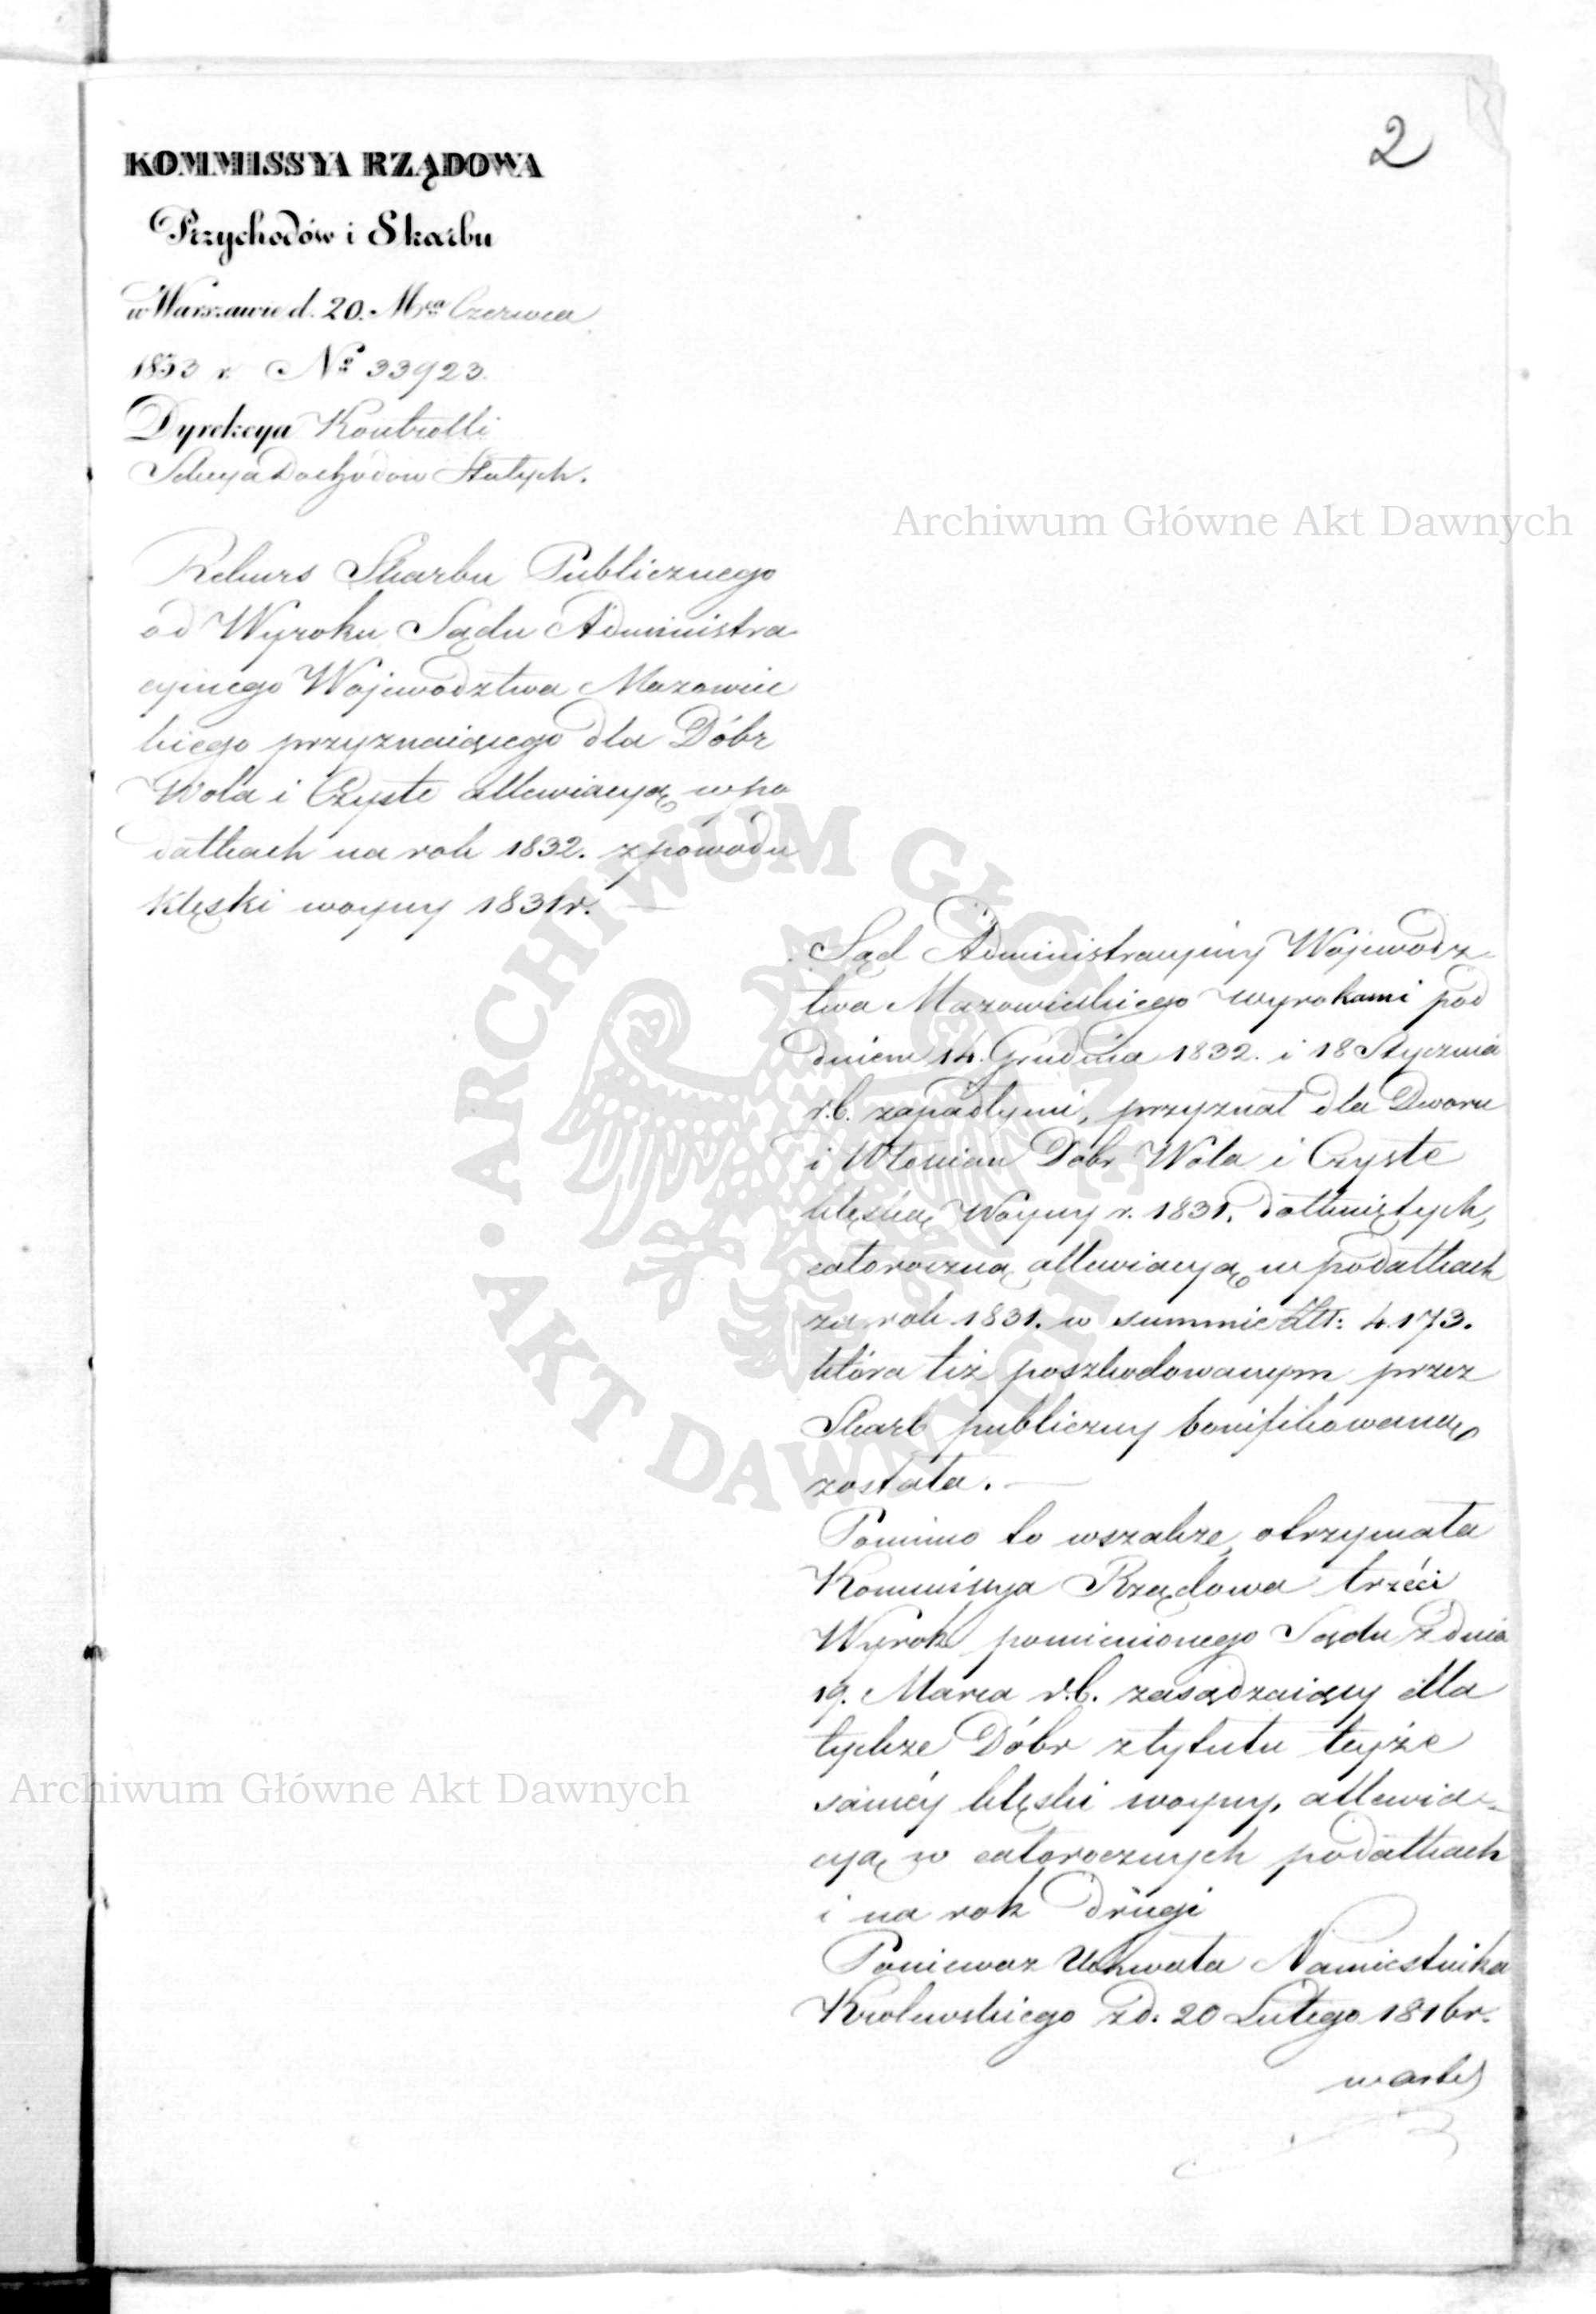 2
KOMMISSYA RZĄDOWA
Przychodów i Skarbu
w Warszawie d. 20. Mca Czerwca
1833 r. No 33923.
Dyrekcya Kontrolli
Sekcya Dochodow Stałych.
Rekurs Skarbu Publicznego
od Wyroku Sądu Administra-
cyinego Województwa Mazowiec
kiego przyznaiącego dla Dóbr
Wola i Czyste allewiacyą w po
datkach na rok 1832. z powodu
klęski woyny 1831 r. —
Archiwum Główne Akt Dawnych
Sąd Administracyiny Wojewódz-
twa Mazowieckiego wyrokami pod
dniem 14. Grudnia 1832. i 18 Stycznia
r.b. zapadłymi, przyznał dla Dworu
i Włościan Dóbr Wola i Czyste
klęską Woyny r. 1831. dotkniętych,
całoroczną allewiacyą w podatkach
za rok 1831. w summie Złt: 4.173.
która też poszkodowanym przez
Skarb publiczny bonifikowaną
została. —
Pomimo to wszakże, otrzymała
Kommissya Rządowa trzeci
Wyrok pomienionego Sądu z dnia
19. Marca r.b. zasądzaiący dla
tychże Dóbr z tytułu teyże
saméy klęski woyny, allewia-
cyą w całorocznych podatkach
i na rok drugi
Poniewaz Uchwała Namiestnika
Krolewskiego z d. 20 Lutego 1816 r.
Archiwum Główne Akt Dawnych
• ARCHIWUM GŁÓWNE • AKT DAWNYCH